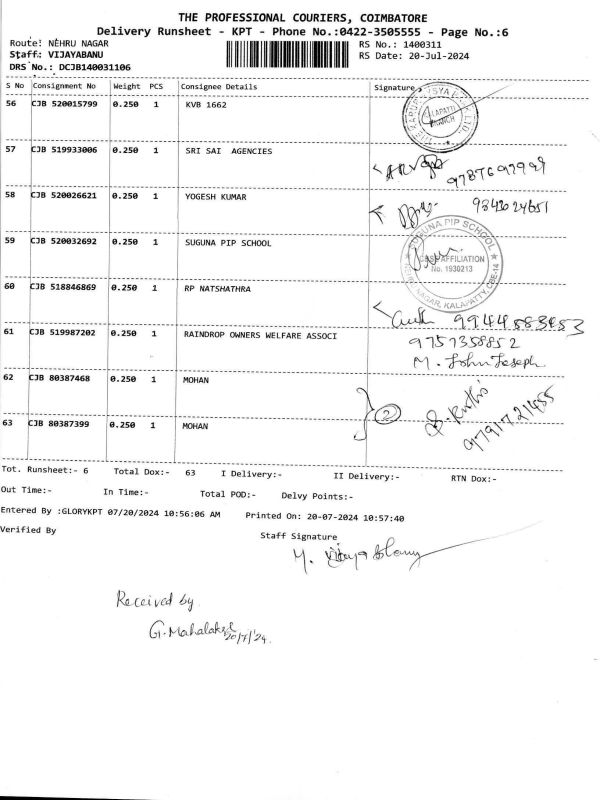 THE PROFESSIONAL COURIERS, COIMBATORE
Delivery Runsheet - KPT - Phone No.:0422-3505555 - Page No.:6
Route: NEHRU NAGAR RS No.: 1400311
Staff: VIJAYABANU RS Date: 20-Jul-2024
DRS No.: DCJB140031106
S No Consignment No Weight PCS Consignee Details Signature
56 CJB 520015799 0.250 1 KVB 1662
KALAPATTI
BRANCH
57 CJB 519933006 0.250 1 SRI SAI AGENCIES
58 CJB 520026621 0.250 1 YOGESH KUMAR
59 CJB 520032692 0.250 1 SUGUNA PIP SCHOOL
SUGUNA PIP SCHOOL
CBSE AFFILIATION
No. 1930213
NEHRU NAGAR, KALAPATTY, CBE-14
60 CJB 518846869 0.250 1 RP NATSHATHRA
61 CJB 519987202 0.250 1 RAINDROP OWNERS WELFARE ASSOCI
9757358852
M. John Joseph
62 CJB 80387468 0.250 1 MOHAN
2
63 CJB 80387399 0.250 1 MOHAN
Tot. Runsheet:- 6 Total Dox:- 63 I Delivery:- II Delivery:- RTN Dox:-
Out Time:- In Time:- Total POD:- Delvy Points:-
Entered By :GLORYKPT 07/20/2024 10:56:06 AM Printed On: 20-07-2024 10:57:40
Verified By Staff Signature
Received by
G. Mahalakshmi
20/7/24.